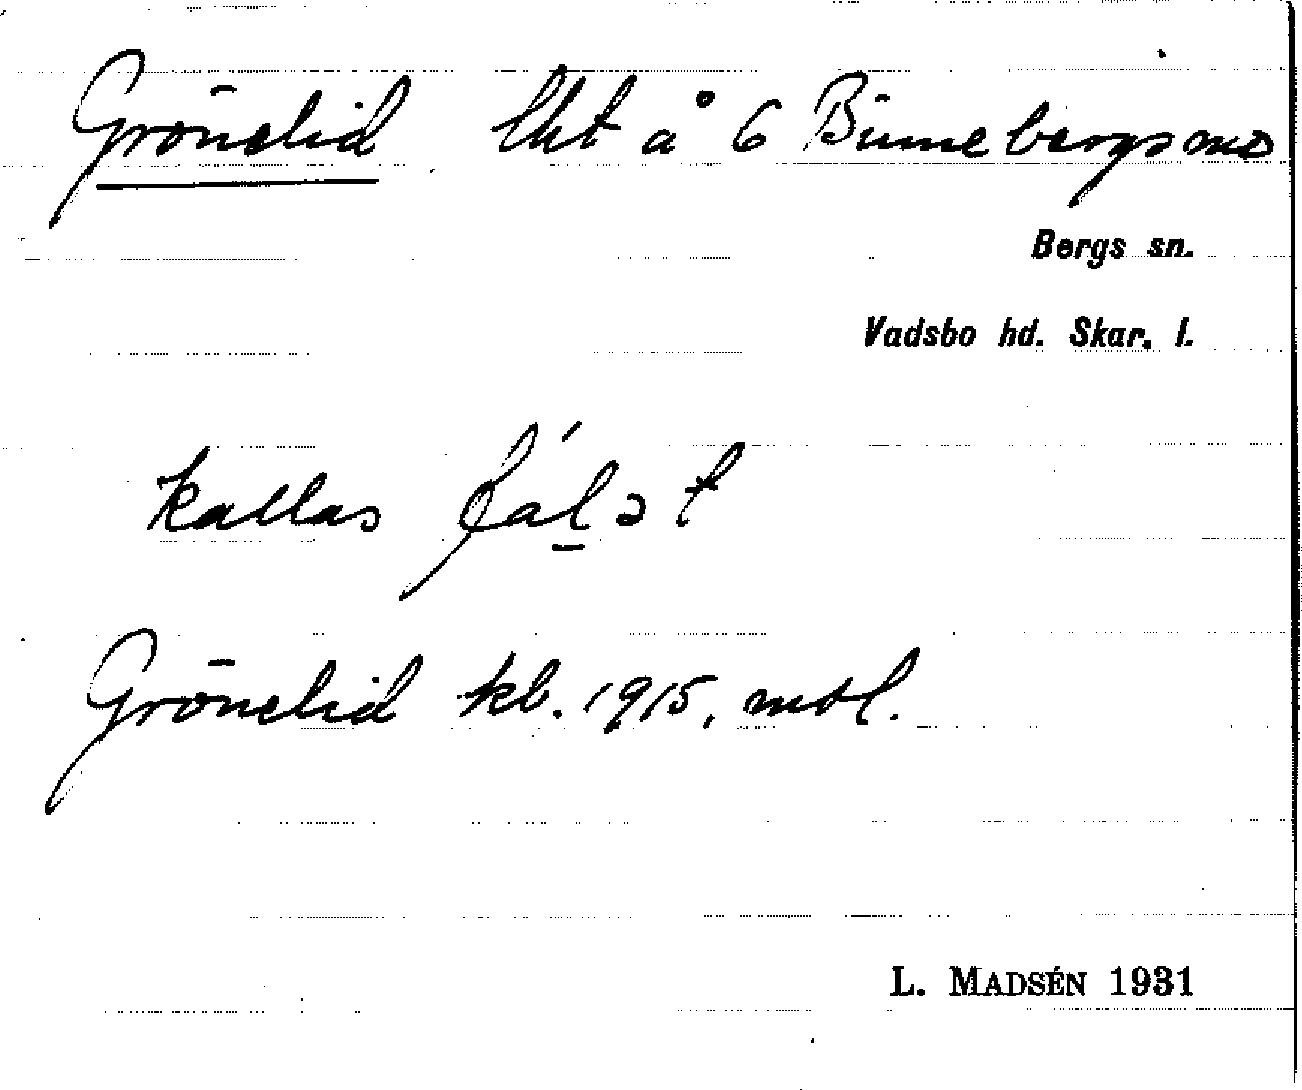 Grönelid lht å 6 Binnebergsmo
Bergs sn.
Vadsbo hd. Skar. l.
kallas fálət
Grönelid kb. 1915, mtl.
L. MADSÉN 1931